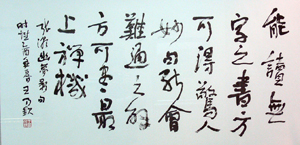 能讀無
字之書方
可得驚人
妙句能會
難通之解
方可参最
上禪機
幽夢影句
乙酉